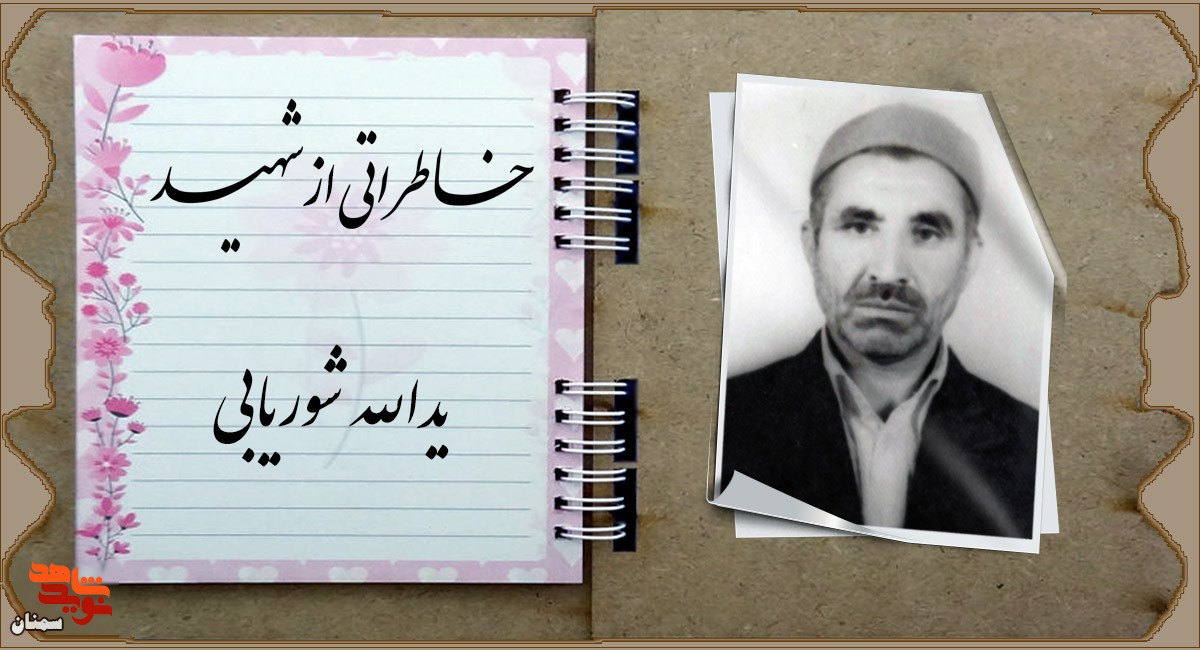 خاطراتی از شهید
یدالله شوریابی
نوید شاهد
سمنان